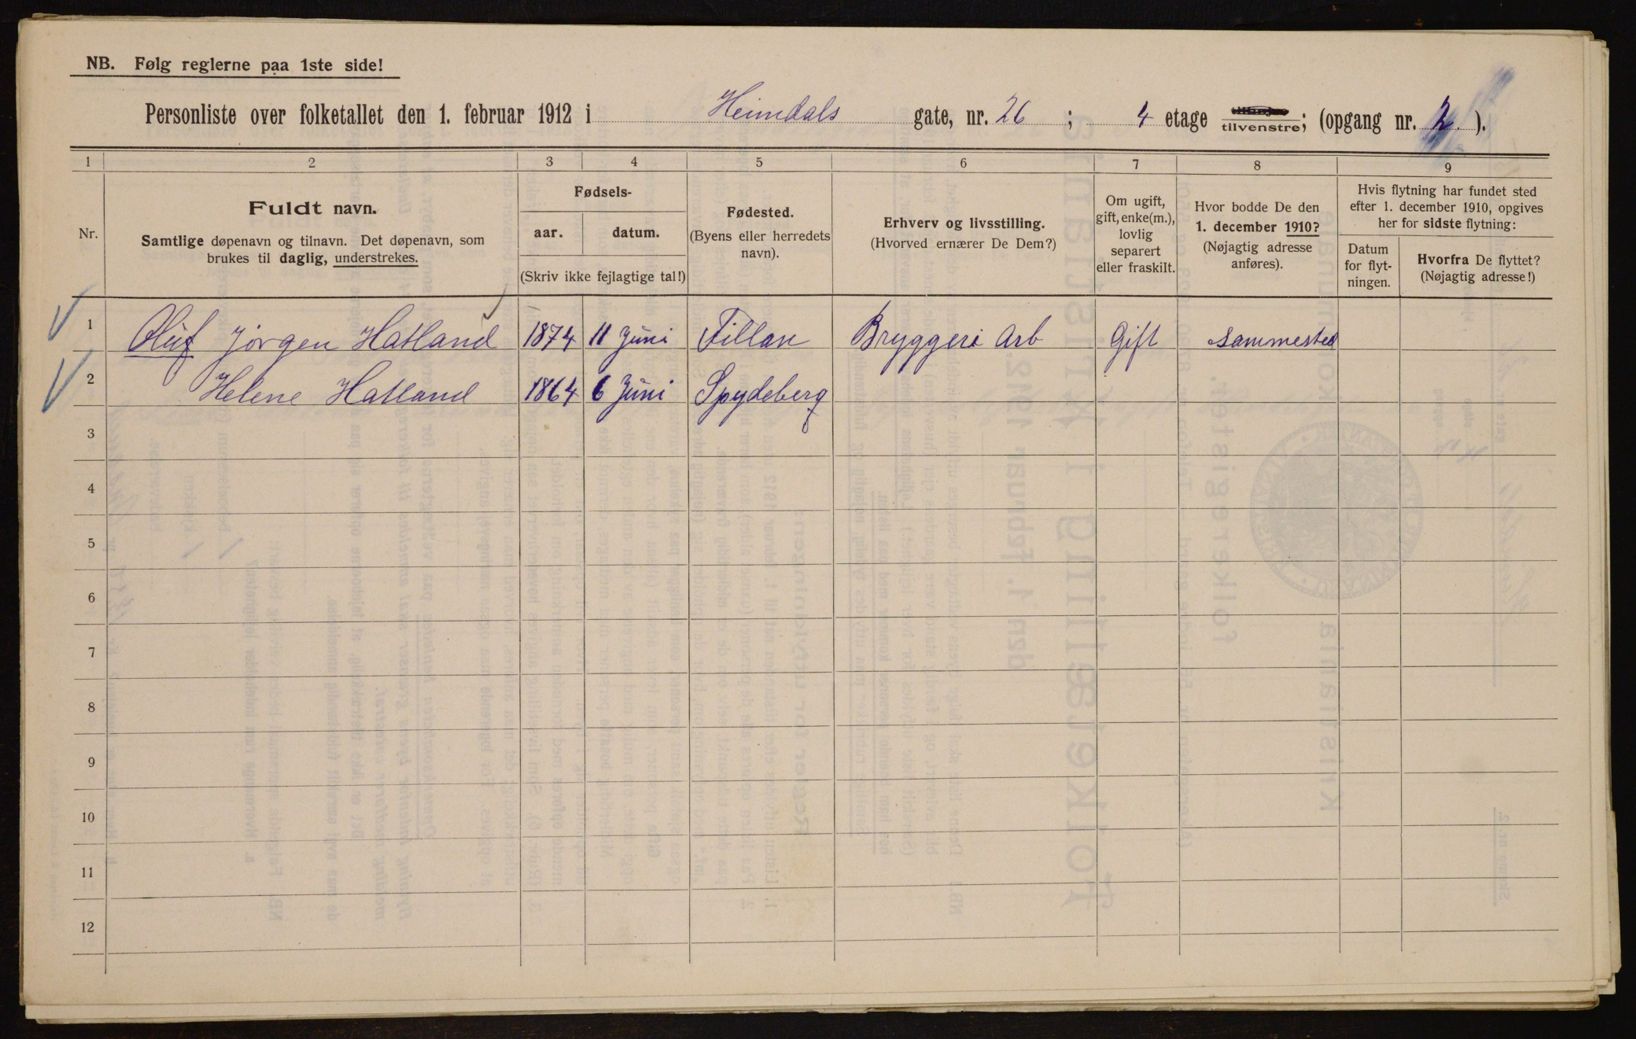 NB. Følg reglerne paa 1ste side!
Personliste over folketallet den 1. februar 1912 i Heimdals gate, nr. 26 ; 4 etage tilhøjre tilvenstre; (opgang nr. 2 ).
1 2 3 4 5 6 7 8 9
Nr.
Fuldt navn.
Samtlige døpenavn og tilnavn. Det døpenavn, som
brukes til daglig, understrekes.
Fødsels-
aar. datum.
(Skriv ikke fejlagtige tal!)
Fødested.
(Byens eller herredets
navn).
Erhverv og livsstilling.
(Hvorved ernærer De Dem?)
Om ugift,
gift, enke(m.),
lovlig
separert
eller fraskilt.
Hvor bodde De den
1. december 1910?
(Nøjagtig adresse
anføres).
Hvis flytning har fundet sted
efter 1. december 1910, opgives
her for sidste flytning:
Datum
for flyt-
ningen.
Hvorfra De flyttet?
(Nøjagtig adresse!)
1 Oluf Jørgen Hatland 1874 11 Juni Fillan Bryggeri Arb Gift Sammested
2 Helene Hatland 1864 6 Juni Spydeberg
3
4
5
6
7
8
9
10
11
12